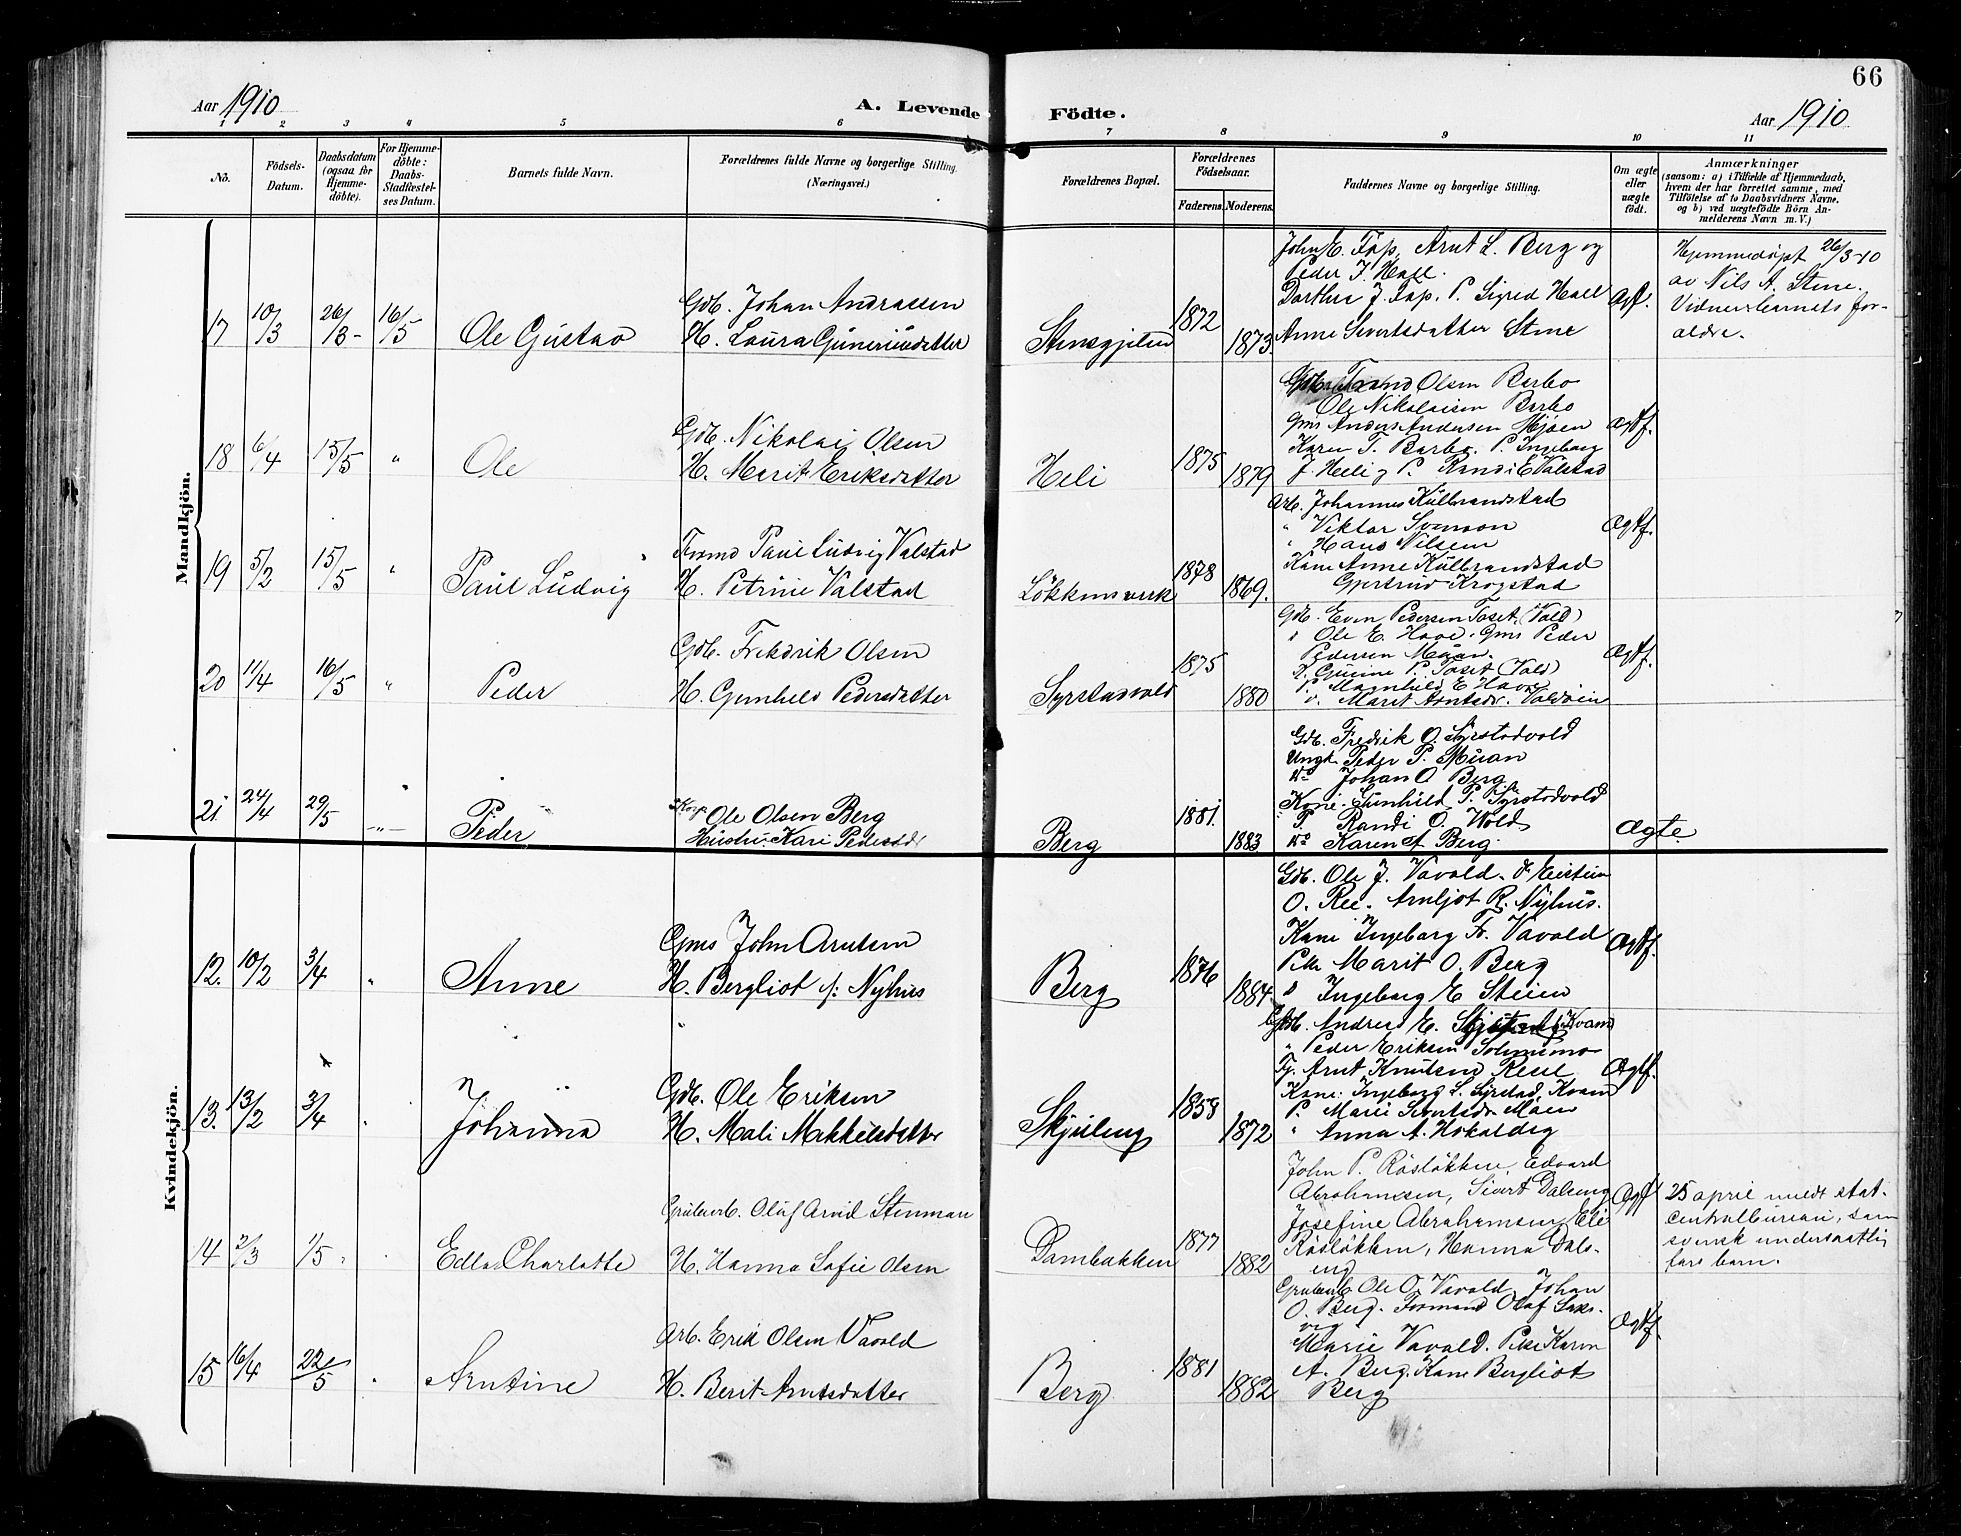 66
Aar 1910
A. Levende Födte.
Aar 1910
1 2 3 4 5 6 7 8 9 10 11
No.
Födsels-Datum.
Daabsdatum (ogsaa for Hjemme-döbte).
For Hjemme-döbte: Daabs-Stadfæstel-ses Datum.
Barnets fulde Navn.
Forældrenes fulde Navne og borgerlige Stilling. (Næringsvei.)
Forældrenes Bopæl.
Forældrenes Födselsaar.
Faderens. Moderens.
Faddernes Navne og borgerlige Stilling.
Om ægte eller uægte födt.
Anmærkninger
(saasom: a) i Tilfælde af Hjemmedaab,
hvem der har forrettet samme, med
Tilföielse af to Daabsvidners Navne,
og b) ved uægtefödte Börn An-
melderens Navn m. V.)
Mandkjön.
17 10/3 26/3- 16/5 Ole Gustav
Gdb. Johan Andrassen
H. Laura Guneriusdatter
1872 1873
John E. Fap, Arnt L. Berg og
Peder J. Hall.
Dorthea J. Fap. P. Sigrid Hall
Anne Sivertsdatter Stine
Ægf.
Hjemmedöpt 26/3-10
av Nils A. Stine.
Vidner: barnets for-
ældre.
18 6/4 15/5 " Ole
Gdb. Nikolai Olsen
H. Marit Eriksdatter
Heli
1875 1879
Trond Olsen Barbo
Ole Nikolaisen Barbo
Gms Anders Andersen Mjöen
Karen T. Barbo. P. Ingeborg
J. Heli g P. Randi E Valstad
Ægtf.
19 5/2 15/5 " Paul Ludvig
Formd Paul Ludvig Valstad
H. Petrine Valstad
Lökkensverk
1878 1869.
Arb. Johannes Kulbrandstad
" Viktor Svenson
" Hans Nilsen
Kone Anne Kulbrandstad
Gjertrud Krogstad
Ægtf.
20 11/4 16/5 " Peder
Gdb. Fredrik Olsen
H. Gunhild Pedersdatter
Syrstadvold
1875 1880
Gdb. Even Pedersen Toset (Vold)
" Ole E. Hove. Gms Peder
Pedersen Muan.
P. Toset (Vold)
P. Magnhild E Hove
Marit Arntsdr.
Ægtf.
21 24/4 29/5 -"- Peder
Ole Olsen Berg
Hustru Kari Pedersdr
Berg
1881. 1883
Gdb. Fredrik O. Syrstadvold
Ungk. Peder P. Muan
do Johan O Berg
Kone Gunhild P. Syrstadvold
P. Randi O. Wold
do Karen A Berg.
Ægte
Kvindekjön.
12. 10/2 3/4 " Anne
Gms John Arntsen
H. Bergliot f: Nyhus
Berg
1876 1884
Gdb. Ole J. Vavold. Eistein
O. Ree. Arnljot R. Nyhus.
Kone Ingeborg Fr. Vavold
Pike Marit O. Berg
" Ingeborg E Steien
Ægtf.
13. 13/2 3/4 " Johanna
Gdb. Ole Eriksen
H. Mali Mikkelsdatter
Skjuleng
1858 1872
Gdb. Andres E. Kvam
" Peder Eriksen Solmsmo
Tj. Arnt Knutsen Resel
Kone: Ingeborg L. Syrstad, Kvam
P. Marie Sivertsdr Moen
" Anna A. Hokaldeg
Ægtf.
14 2/3 1/5 " Edla Charlotte
Grubearb. Oluf Arvid Stenman
H. Hanna Sofie Olsen
Dambakken
1877 1882
John P. Rösløkken, Edvard
Abrahamsen, Sivert Dalseng
Josefine Abrahamsen, Eli
Rösløkken, Hanna Dals-
eng
Ægtf
25 april meldt stat.
centralbureau, som
svensk undersaatlig
fars barn.
15 16/4 22/5 " Arntine
Arb. Erik Olsen Vavold
H. Berit Arntsdatter
Berg
1881 1882
Grubearb. Ole O. Vavold, Johan
O. Berg. Formand Olaf Saks-
vig
Marie Vavold. Pike Karen
A. Berg. Kone Bergliot
Berg
Ægtf.